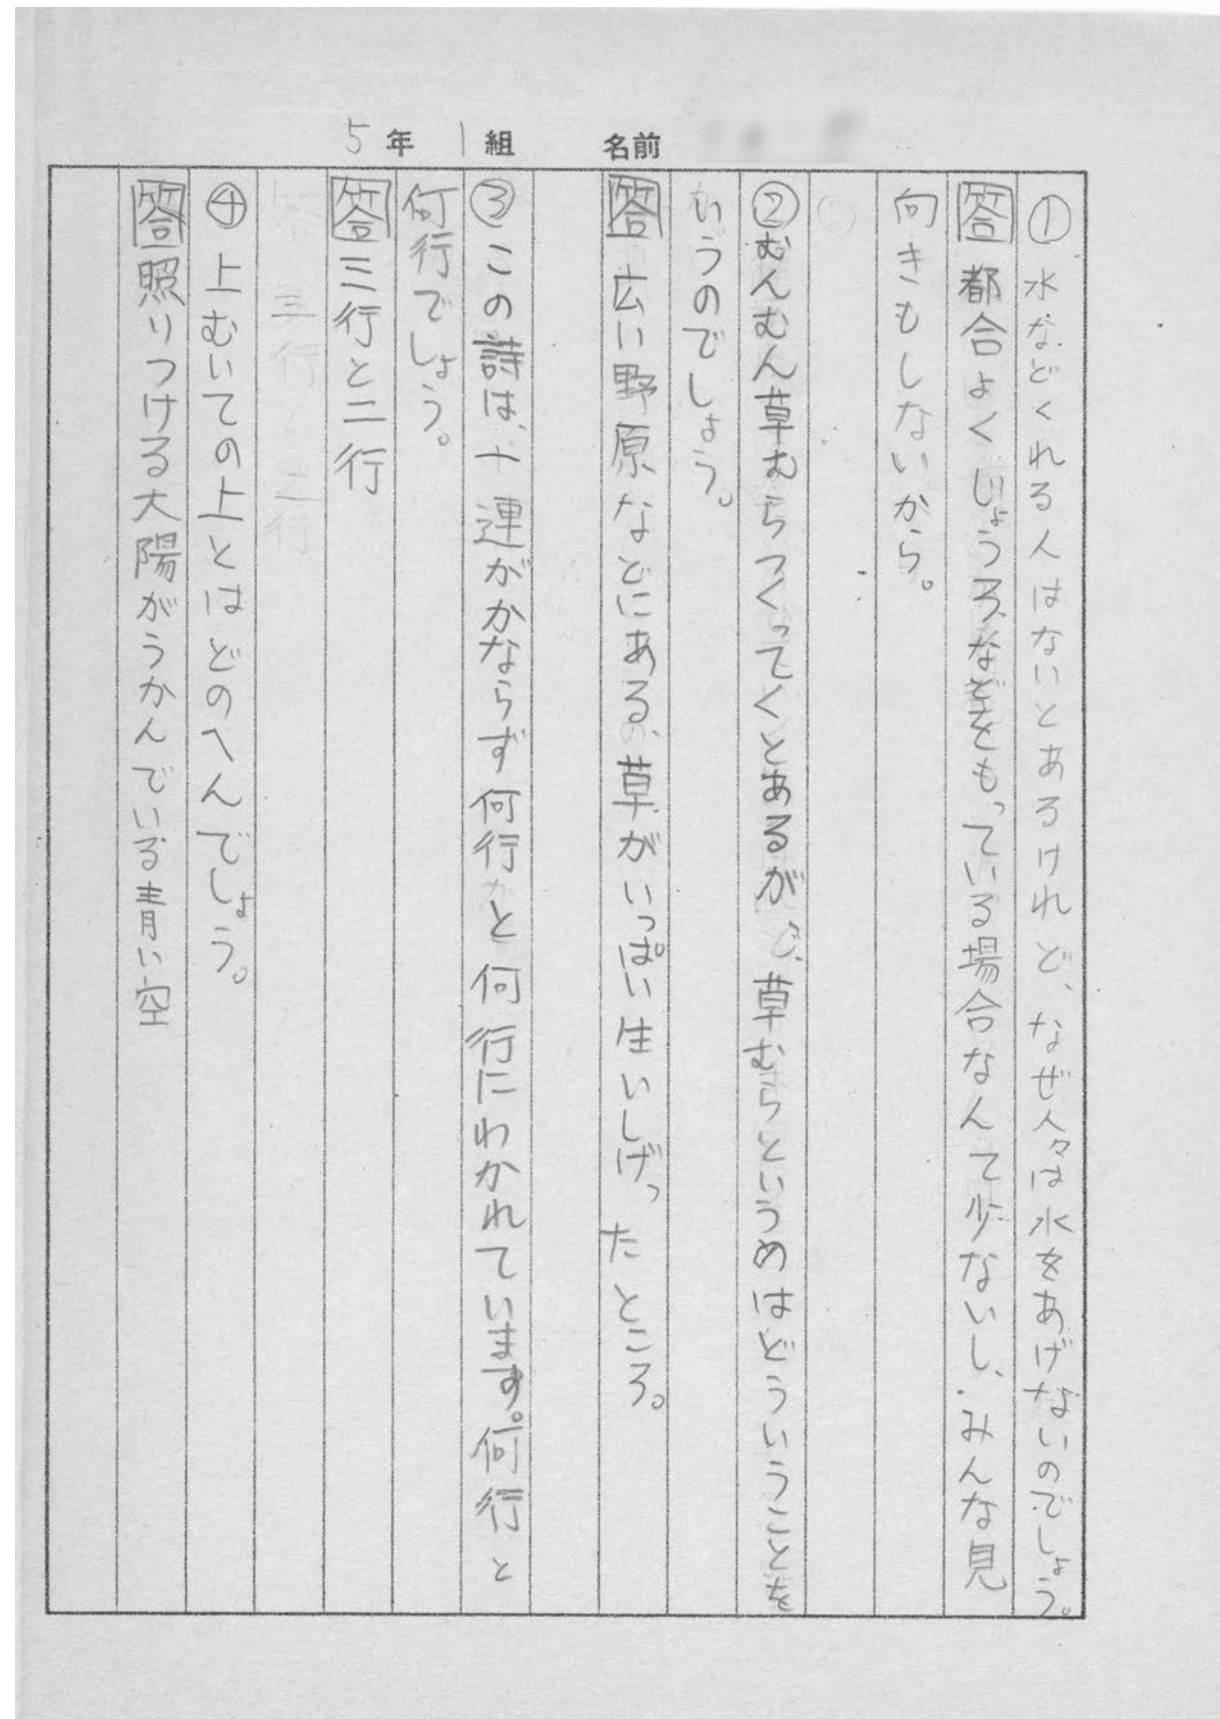 5年 1組 名前
① 水などくれる人はないとあるけれど、なぜ人々は水をあげないのでしょう。
答 都合よくじょうろなどをもっている場合なんて少ないし、みんな見
向きもしないから。
②むんむん草むらつくってくとあるが、草むらというのはどういうことを
いうのでしょう。
答 広い野原などにある、草がいっぱい生いしげったところ。
③この詩は、一連がかならず何行と何行にわかれています。何行と
何行でしょう。
答 三行と二行
④上むいての上とはどのへんでしょう。
答 照りつける大陽がうかんでいる青い空